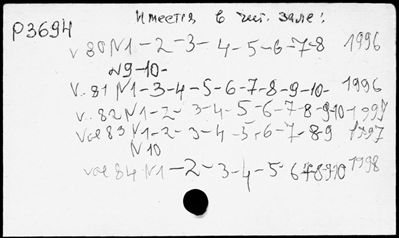 Имеется в чит. зале:
P3694
v 80 N1-2-3-4-5-6-7-8 1996
N9-10-
V. 81 N1-3-4-5-6-7-8-9-10- 1996
V. 82 N1-2-3-4-5-6-7-8-9-10-1997
Vol 83 N1-2-3-4-5-6-7-8-9 1997
N10
vol 84 N1-2-3-4-5 678910 1998